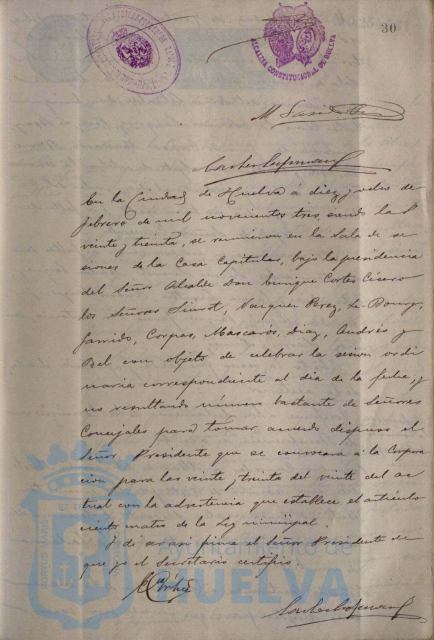 30
ALCALDIA CONSTITUCIONAL DE HUELVA
En la Ciudad de Huelva á diez y ocho de
febrero de mil novecientos tres, siendo las
veinte y treinta, se reunieron en la Sala de se
siones de la Casa Capitular, bajo la presidencia
del Señor Alcalde Don Enrique Cortes Cisero
los Señores Siurot, Vazquez Perez, Le Bourg,
Garrido, Corpas, Mascarós, Diaz, Andrés y
Bel con objeto de celebrar la sesion ordi
naria correspondiente al dia de la fecha, y
no resultando número bastante de Señores
Concejales para tomar acuerdo dispuso el
Señor Presidente que se convocara á la Corpora
cion para las veinte y treinta del veinte del ac
tual con la advertencia que establece el artículo
ciento cuatro de la Ley municipal.
Y de ser asi firma el Señor Presidente de
que yo el Secretario certifico.
Ayuntamiento de
HUELVA